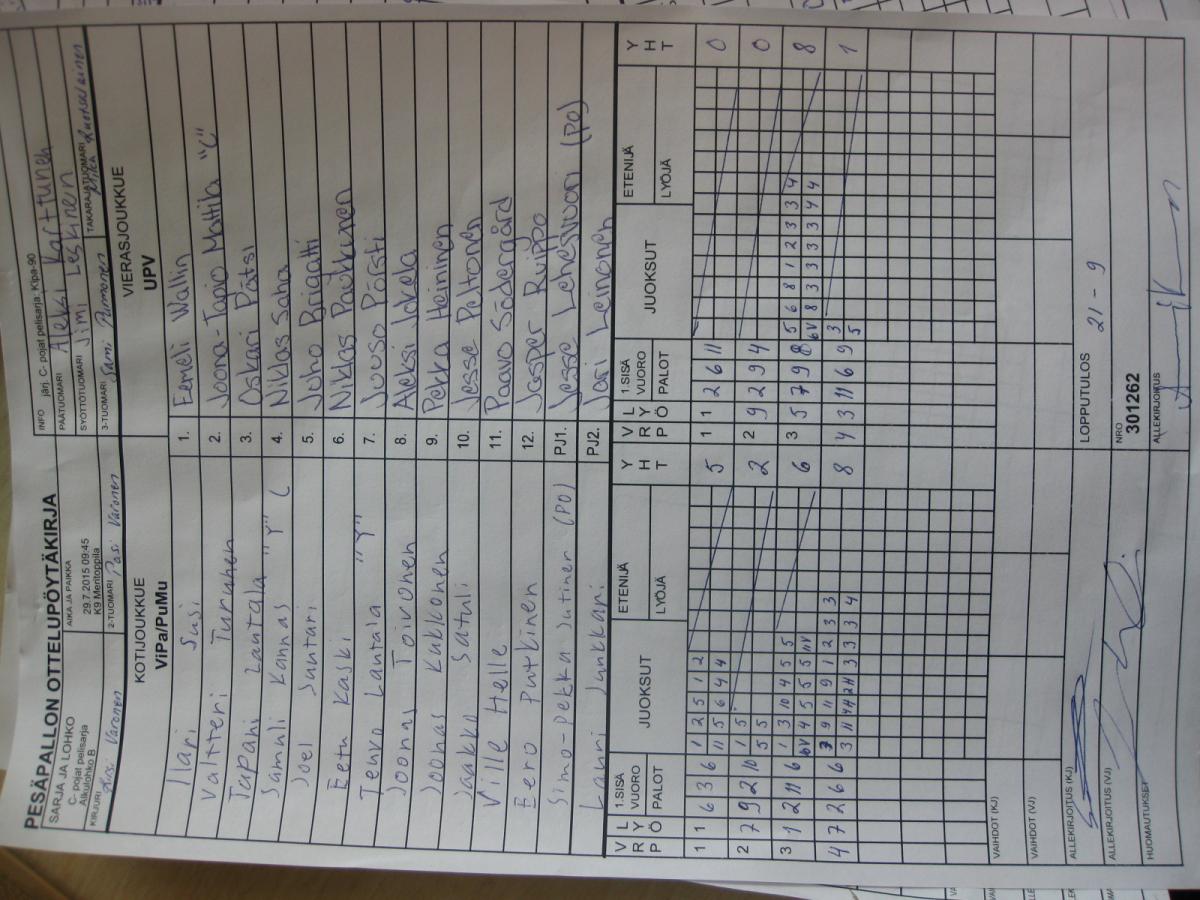 PESÄPALLON OTTELUPÖYTÄKIRJA
SARJA JA LOHKO
C- pojat pelisarja
Alkulohko B
AIKA JA PAIKKA
29.7.2015 09:45
K9 Mertoppila
INFO järj. C- pojat pelisarja: Kipa-90
PÄÄTUOMARI Aleksi Karttunen
SYÖTTÖTUOMARI Jimi Leskinen
KIRJURI Varonen
2-TUOMARI Pasi Varonen
3-TUOMARI Sami Purmonen
TAKARAJATUOMARI Mika Ruotsalainen
KOTIJOUKKUE
ViPa/PuMu
VIERASJOUKKUE
UPV
Ilari Susi 1. Eemeli Wallin
Valtteri Turunen 2. Joona-Tapio Mattila "C"
Tapani Lantala 3. Oskari Pätsi
Samuli Kannas "Y" C 4. Niklas Saha
Joel Suntari 5. Juho Brigatti
Eetu Kaski 6. Niklas Paukkunen
Tenvo Lantala "Y" 7. Juuso Pörsti
Joonas Toivonen 8. Aleksi Jokela
Joonas Kukkonen 9. Pekka Heininen
Jaakko Satuli 10. Jesse Peltonen
Ville Helle 11. Paavo Södergård
Eero Putkinen 12. Jasper Ruippo
Simo-Pekka Sutinen (PO) PJ1. Jesse Lehesvuori (PO)
Lauri Junkkari PJ2. Jari Leinonen
V R P L Y Ö 1.SISÄ VUORO PALOT JUOKSUT ETENIJÄ LYÖJÄ Y H T V R P L Y Ö 1.SISÄ VUORO PALOT JUOKSUT ETENIJÄ LYÖJÄ Y H T
1 1 6 3 6 1 2 5 1 2 5 1 1 2 6 11 0
11 5 6 4 4
2 7 9 2 10 1 5 2 2 9 2 9 4 0
5 5
3 1 2 11 6 1 3 10 4 5 5 6 3 5 7 9 8 5 6 8 1 2 3 3 4 8
6V 4 5 5 5 1V 6V 8 3 3 3 3 4 4
4 7 2 6 6 3 9 9 9 1 2 3 3 8 4 3 11 6 9 3 1
3 11 4 3 3 3 4 5
VAIHDOT (KJ)
VAIHDOT (VJ)
ALLEKIRJOITUS (KJ)
LOPPUTULOS 21 - 9
ALLEKIRJOITUS (VJ)
NRO
301262
HUOMAUTUKSET
ALLEKIRJOITUS